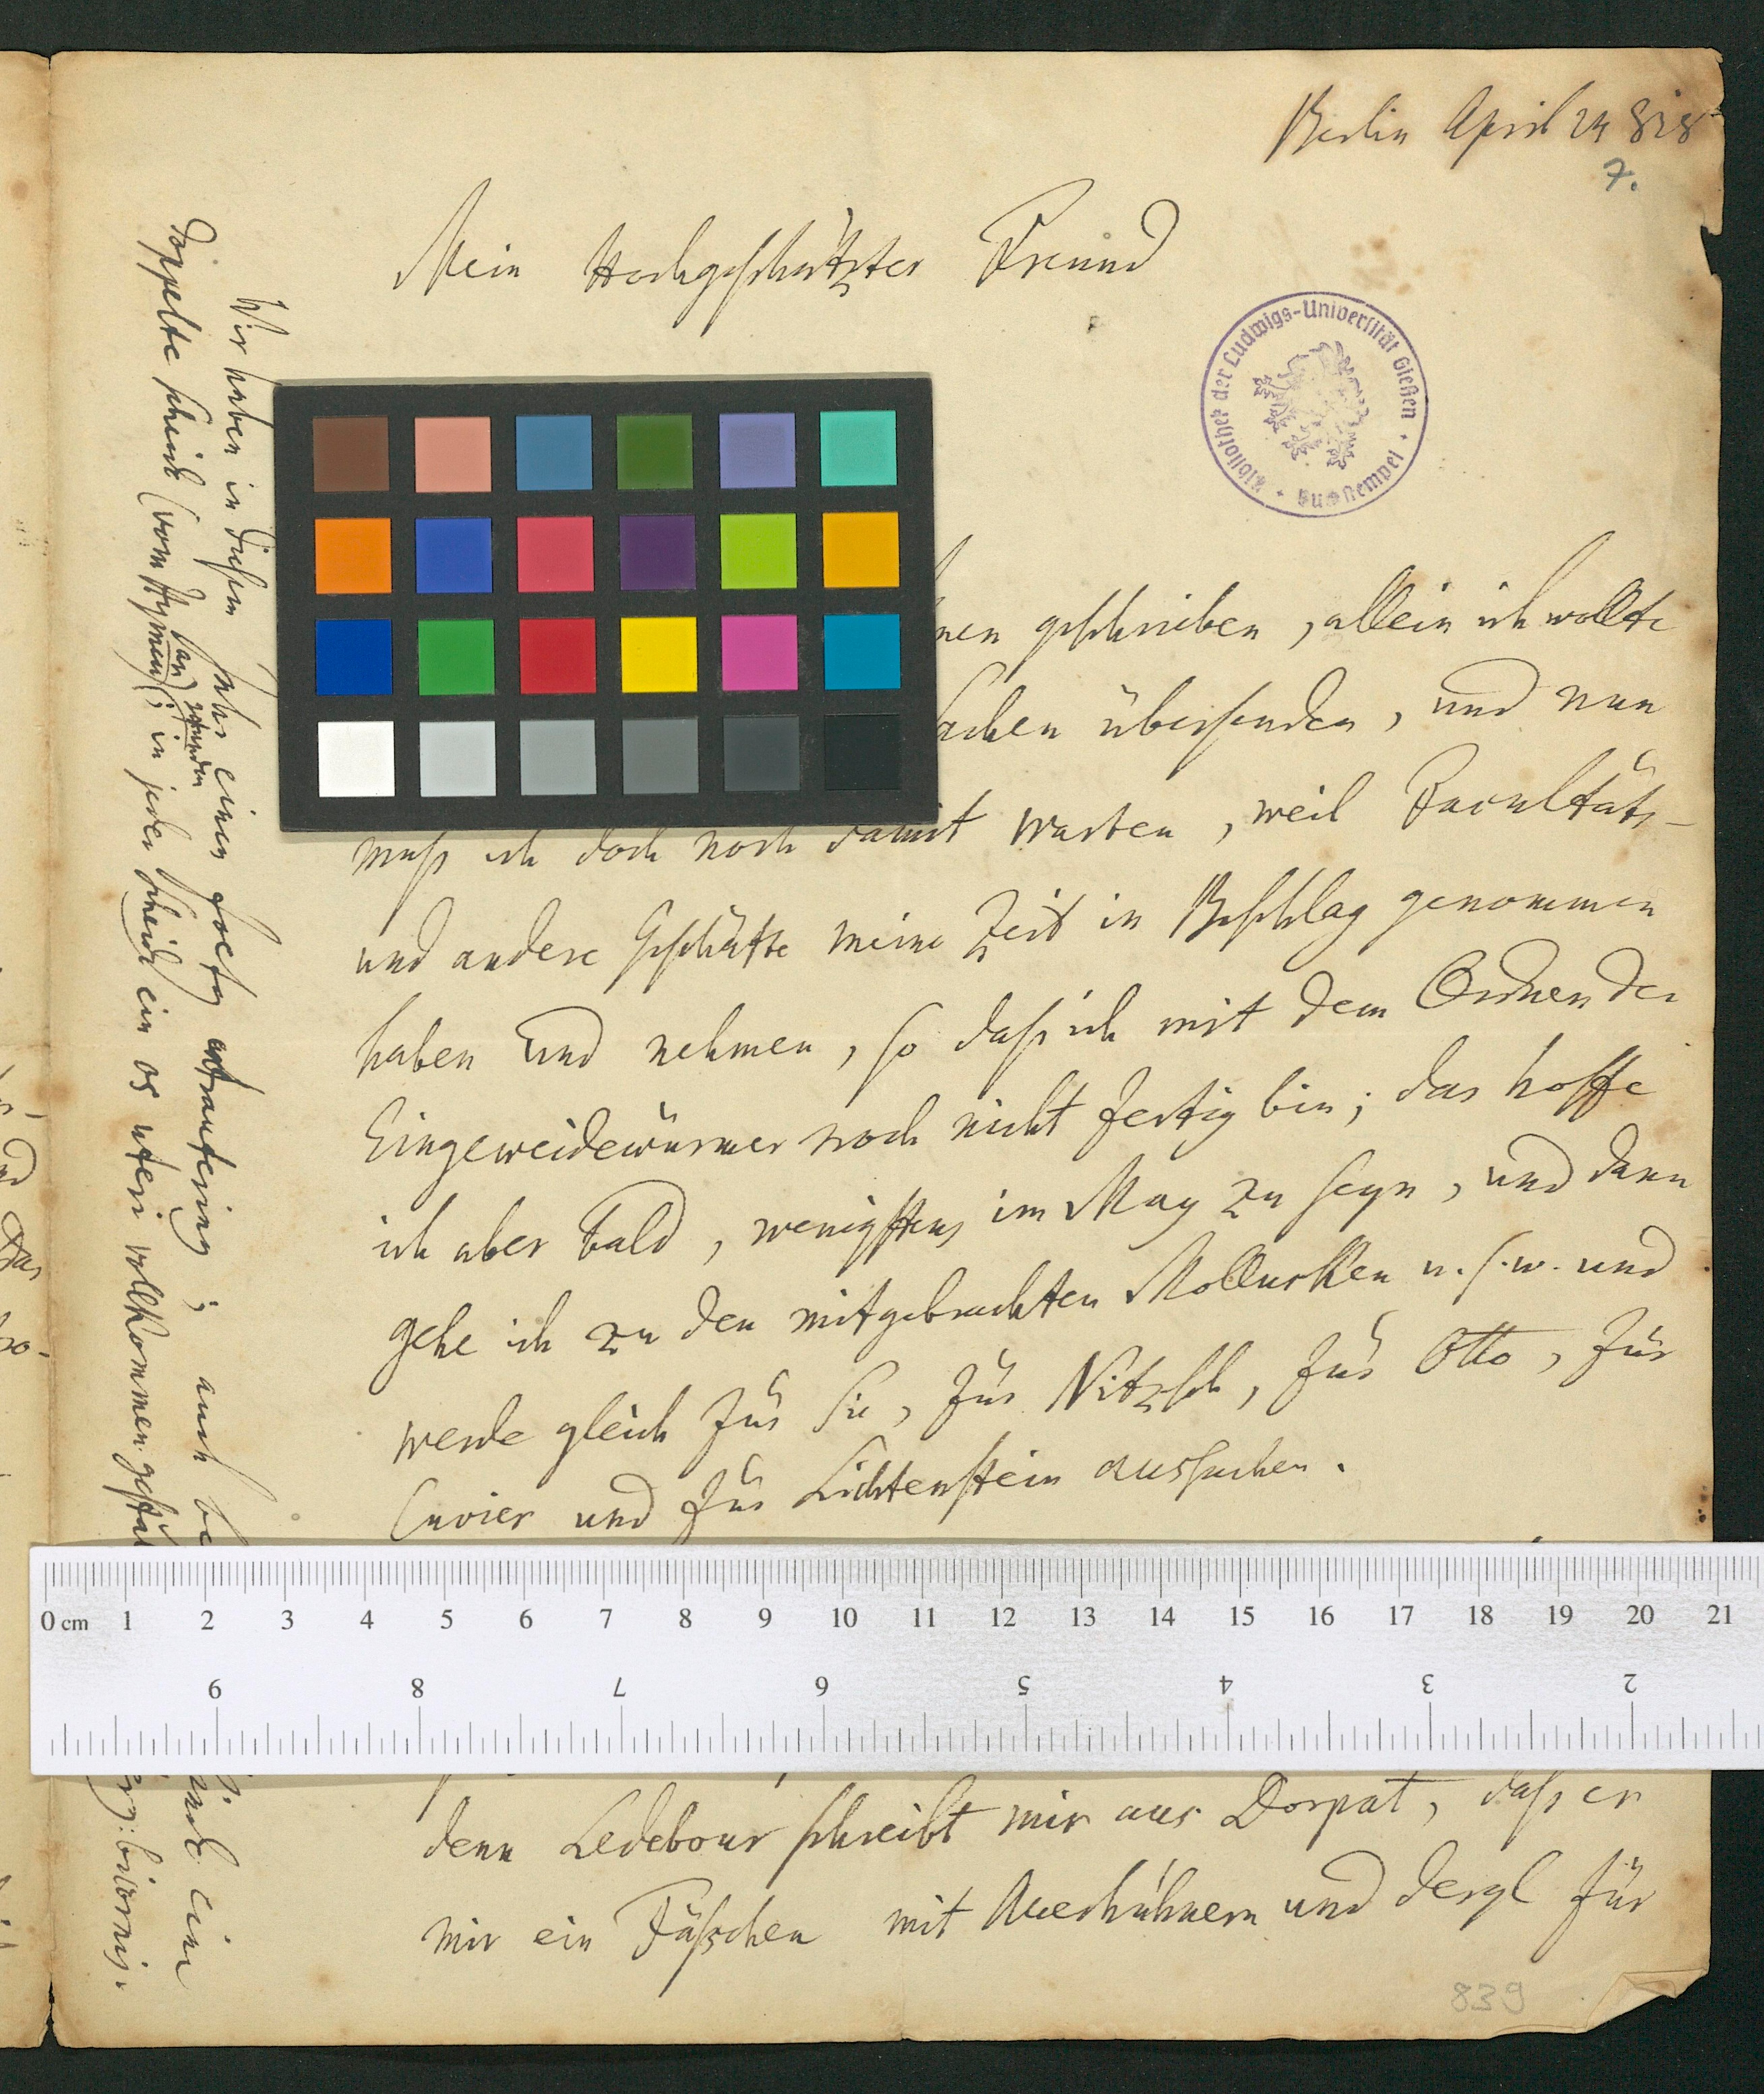 Berlin April 24 828
7.
Mein Hochgeschätzter Freund
Bibliothek der Ludwigs-Universität Gießen
geschrieben, allein ich wollte
übersenden, und nun
muß ich doch noch damit warten, weil Facultäts-
und andere Geschäfte meine Zeit in Beschlag genommen
haben und nehmen, so daß ich mit dem Ordnen der
Eingeweidewürmer noch nicht fertig bin; das hoffe
ich aber bald, wenigstens im May zu seyn, und dann
gehe ich zu den mitgebrachten Mollusken u.s.w. und
werde gleich für Sie, für Nitzsch, für Otto, für
Cuvier und für Lichtenstein aussuchen.
0 cm 1 2 3 4 5 6 7 8 9 10 11 12 13 14 15 16 17 18 19 20 21
9 8 7 6 5 4 3 2
denn Ledebour schreibt mir aus Dorpat, daß er
mir ein Fäßchen mit Auerhühnern und dergl für
839
Wir haben in diesem Jahr einen foetus extrauterinus; auch
eine
doppelte scheide (vom Hymen an); in jeder scheide ein os uteri vollkommen
bicornis.